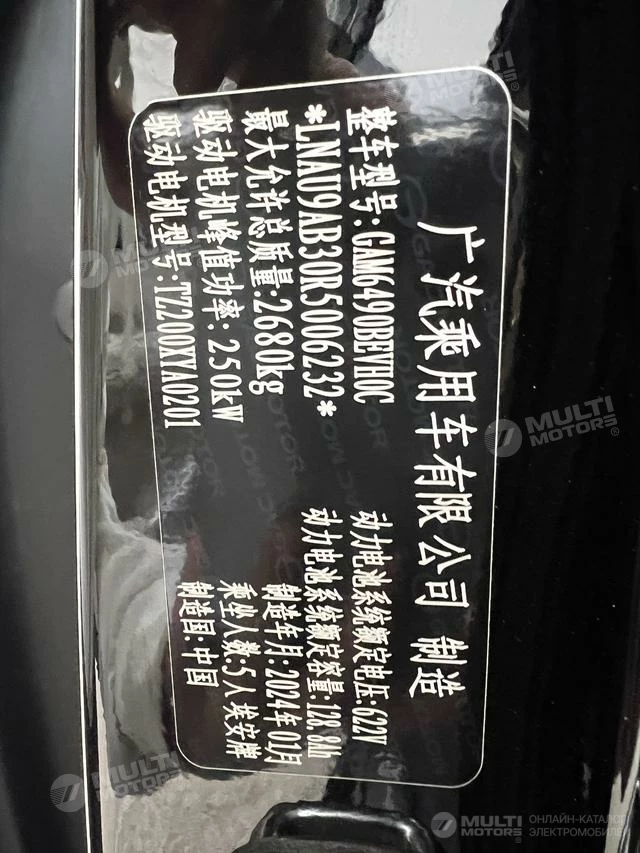 广汽乘用车有限公司 制造
整车型号:GAM6490BEVH0C 动力电池系统额定电压:622V
*LNAU9AB30R5006232* 动力电池系统额定容量:128.8Ah
最大允许总质量:2680kg 制造年月:2024年01月
驱动电机峰值功率: 250kW 乘坐人数:5人
驱动电机型号:TZ200XYA0201 制造国:中国
MULTI MOTORS®
MULTI MOTORS®
MULTI MOTORS®
MULTI MOTORS®
MULTI MOTORS®
ОНЛАЙН-КАТАЛОГ
ЭЛЕКТРОМОБИЛЕЙ